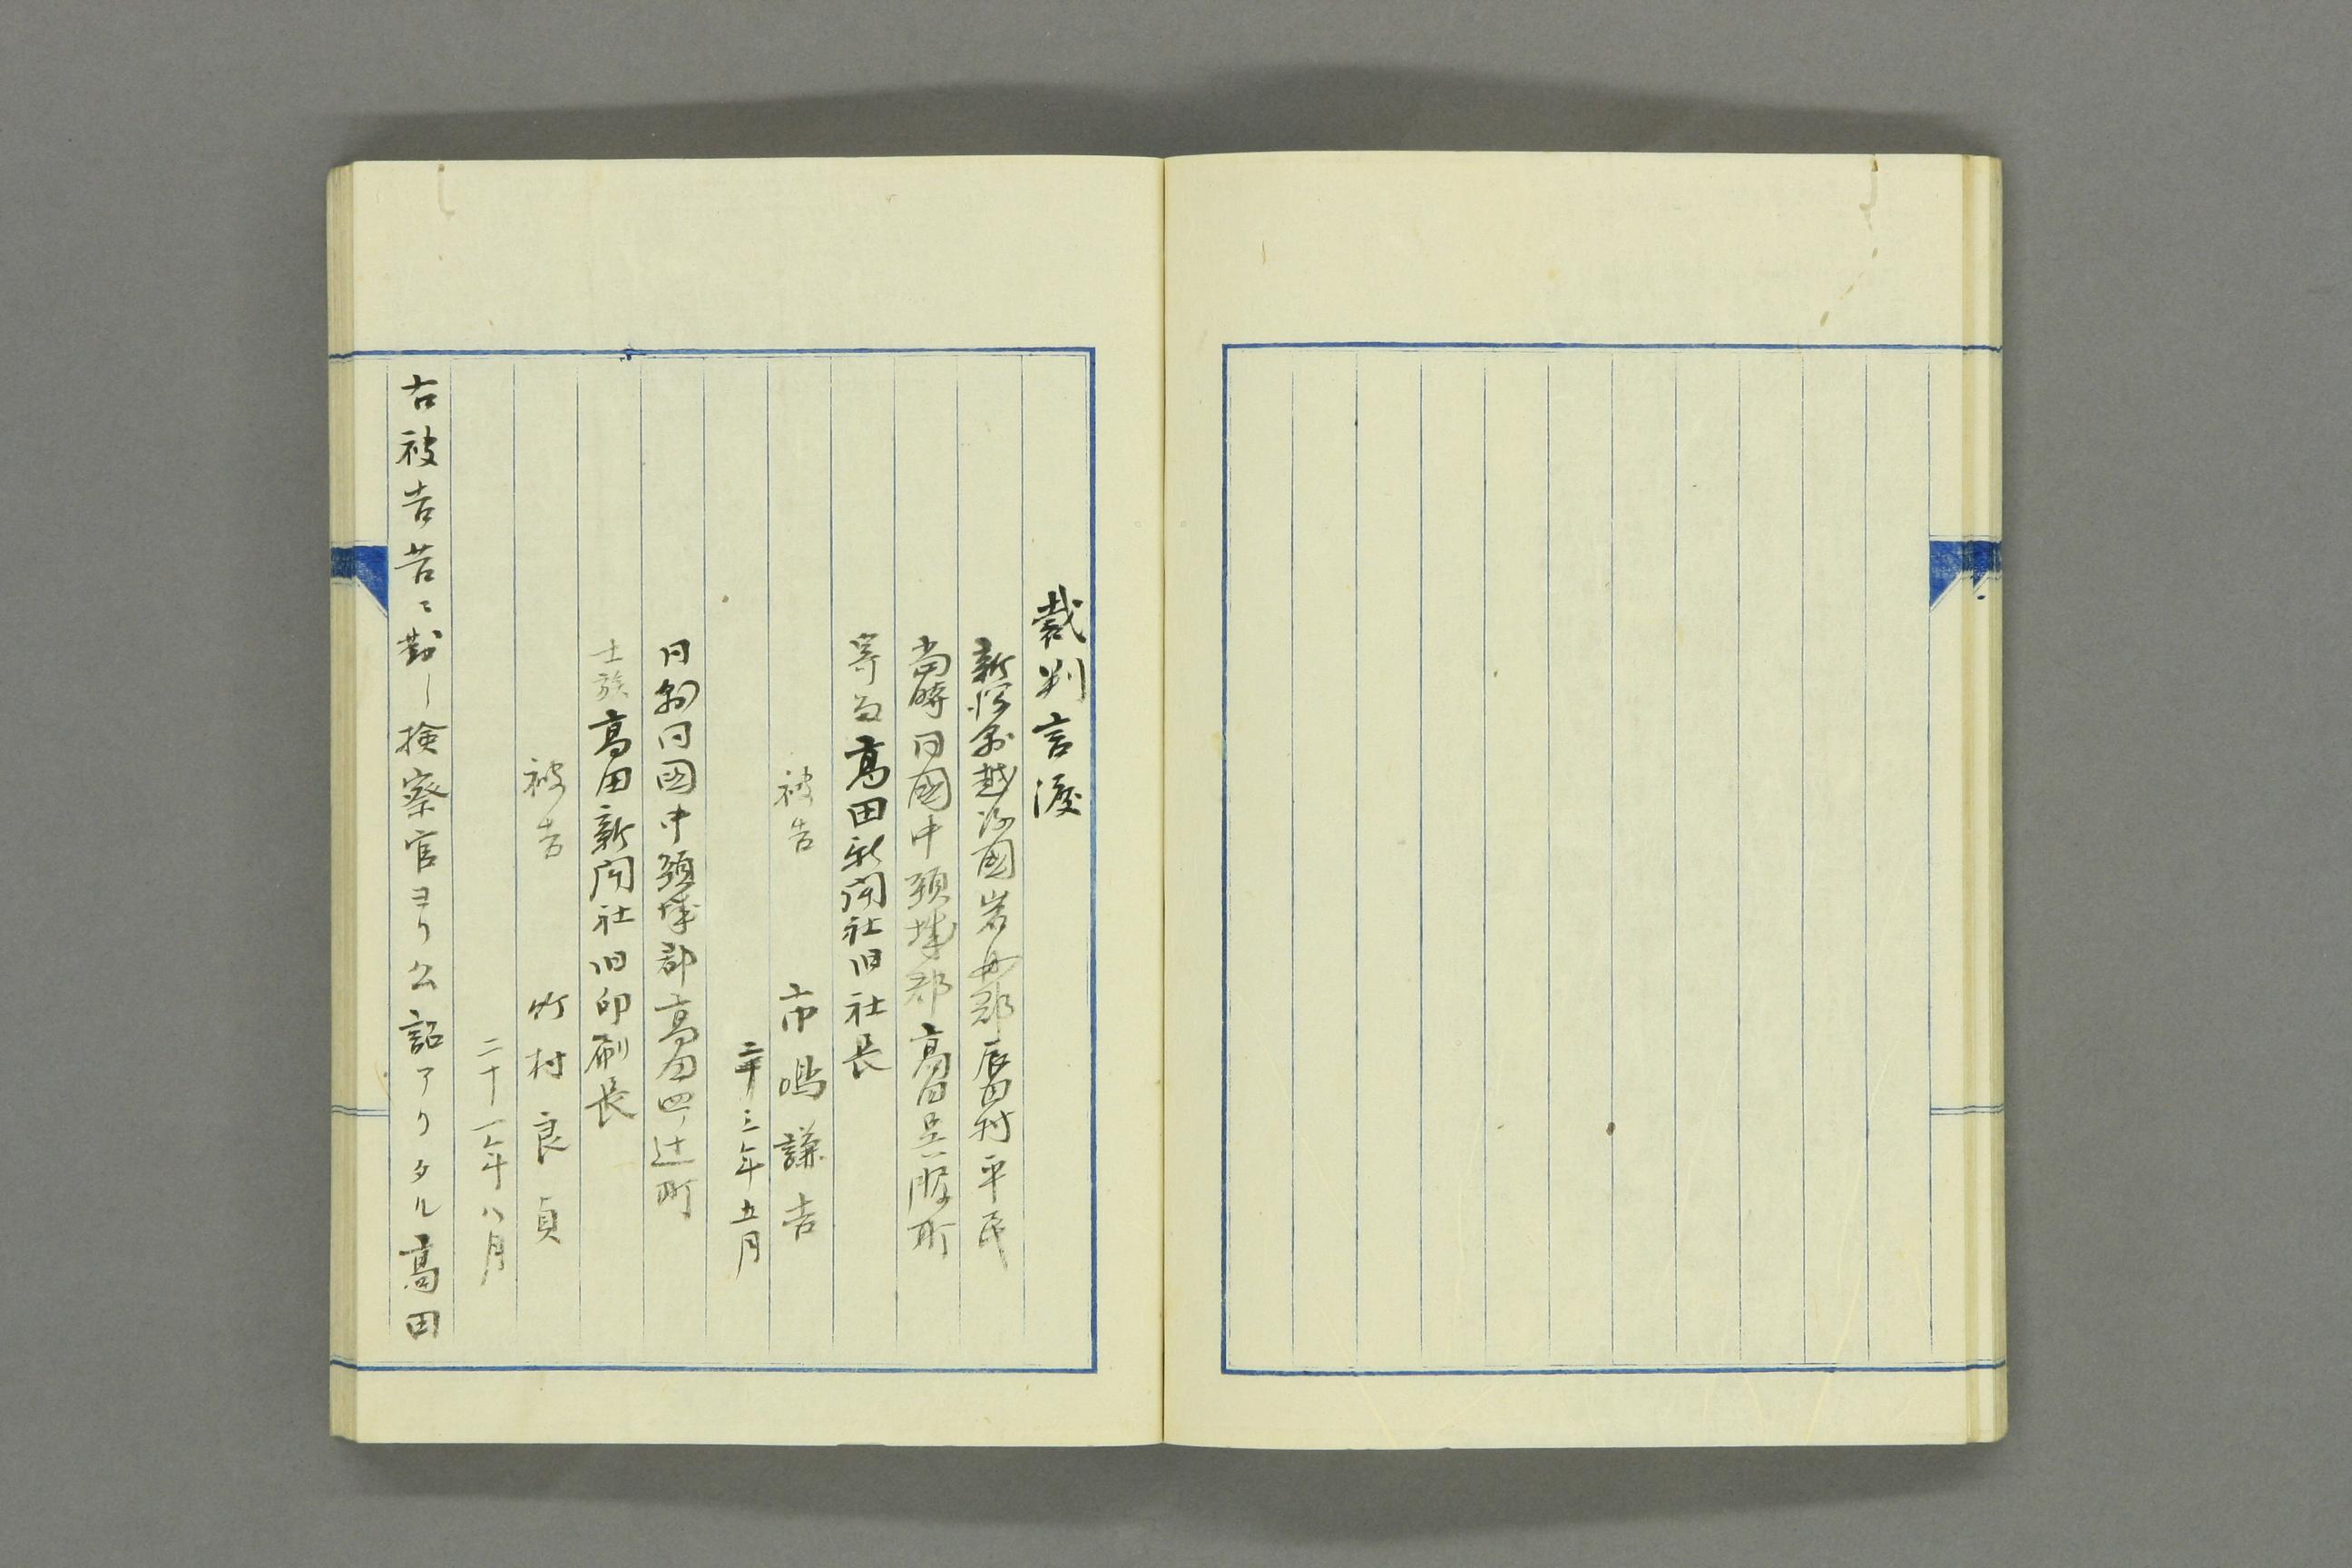 裁判言渡
新潟縣越後國岩舩郡原田村平民
當時同國中頸城郡高田呉服町
寄留高田新聞社旧社長
被告 市嶋謙吉
二十三年五月
同縣同國中頸城郡高田四ノ辻町
士族高田新聞社旧印刷長
被告 竹村良貞
二十一年八月
右被告等ニ對シ検察官ヨリ公訴アリタル高田